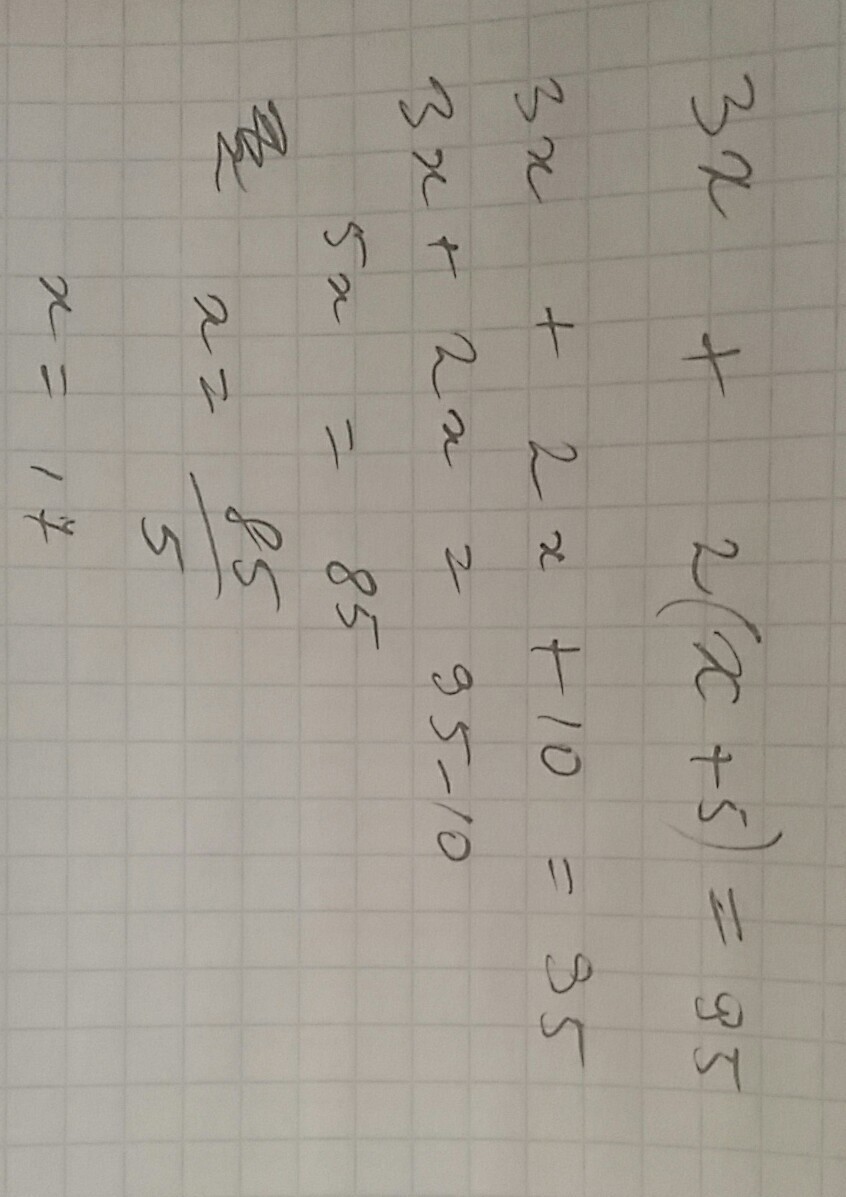 3x + 2(x+5) = 95
3x + 2x + 10 = 95
3x + 2x = 95-10
5x = 85
x = 85/5
x = 17